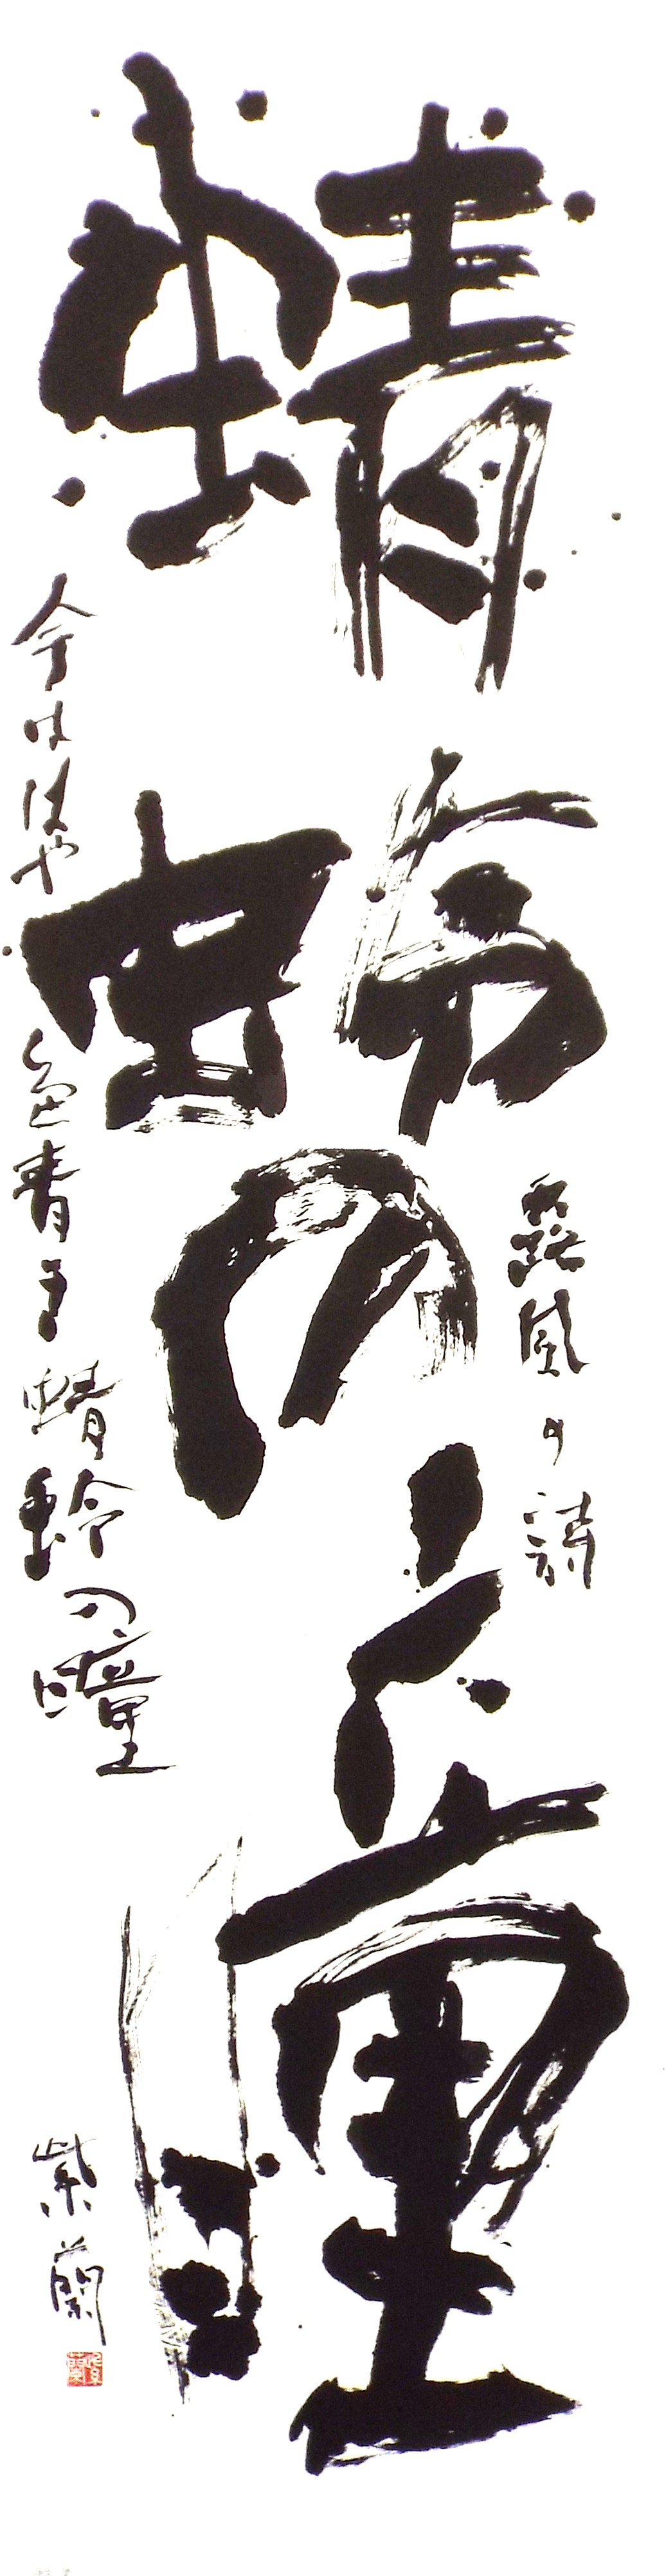 蜻蛉の瞳
露風の詩
今ははや 色青き蜻蛉の瞳
紫蘭